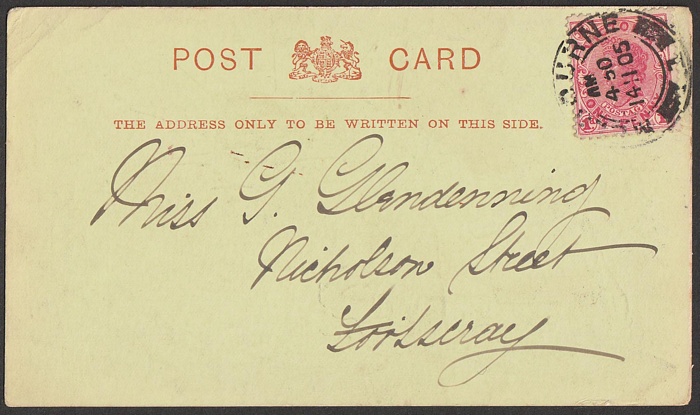 POST CARD
THE ADDRESS ONLY TO BE WRITTEN ON THIS SIDE.
Miss G. Glendenning
Nicholson Street
Footscray
BURNE
AM
4-50
14 11 05
POSTAGE